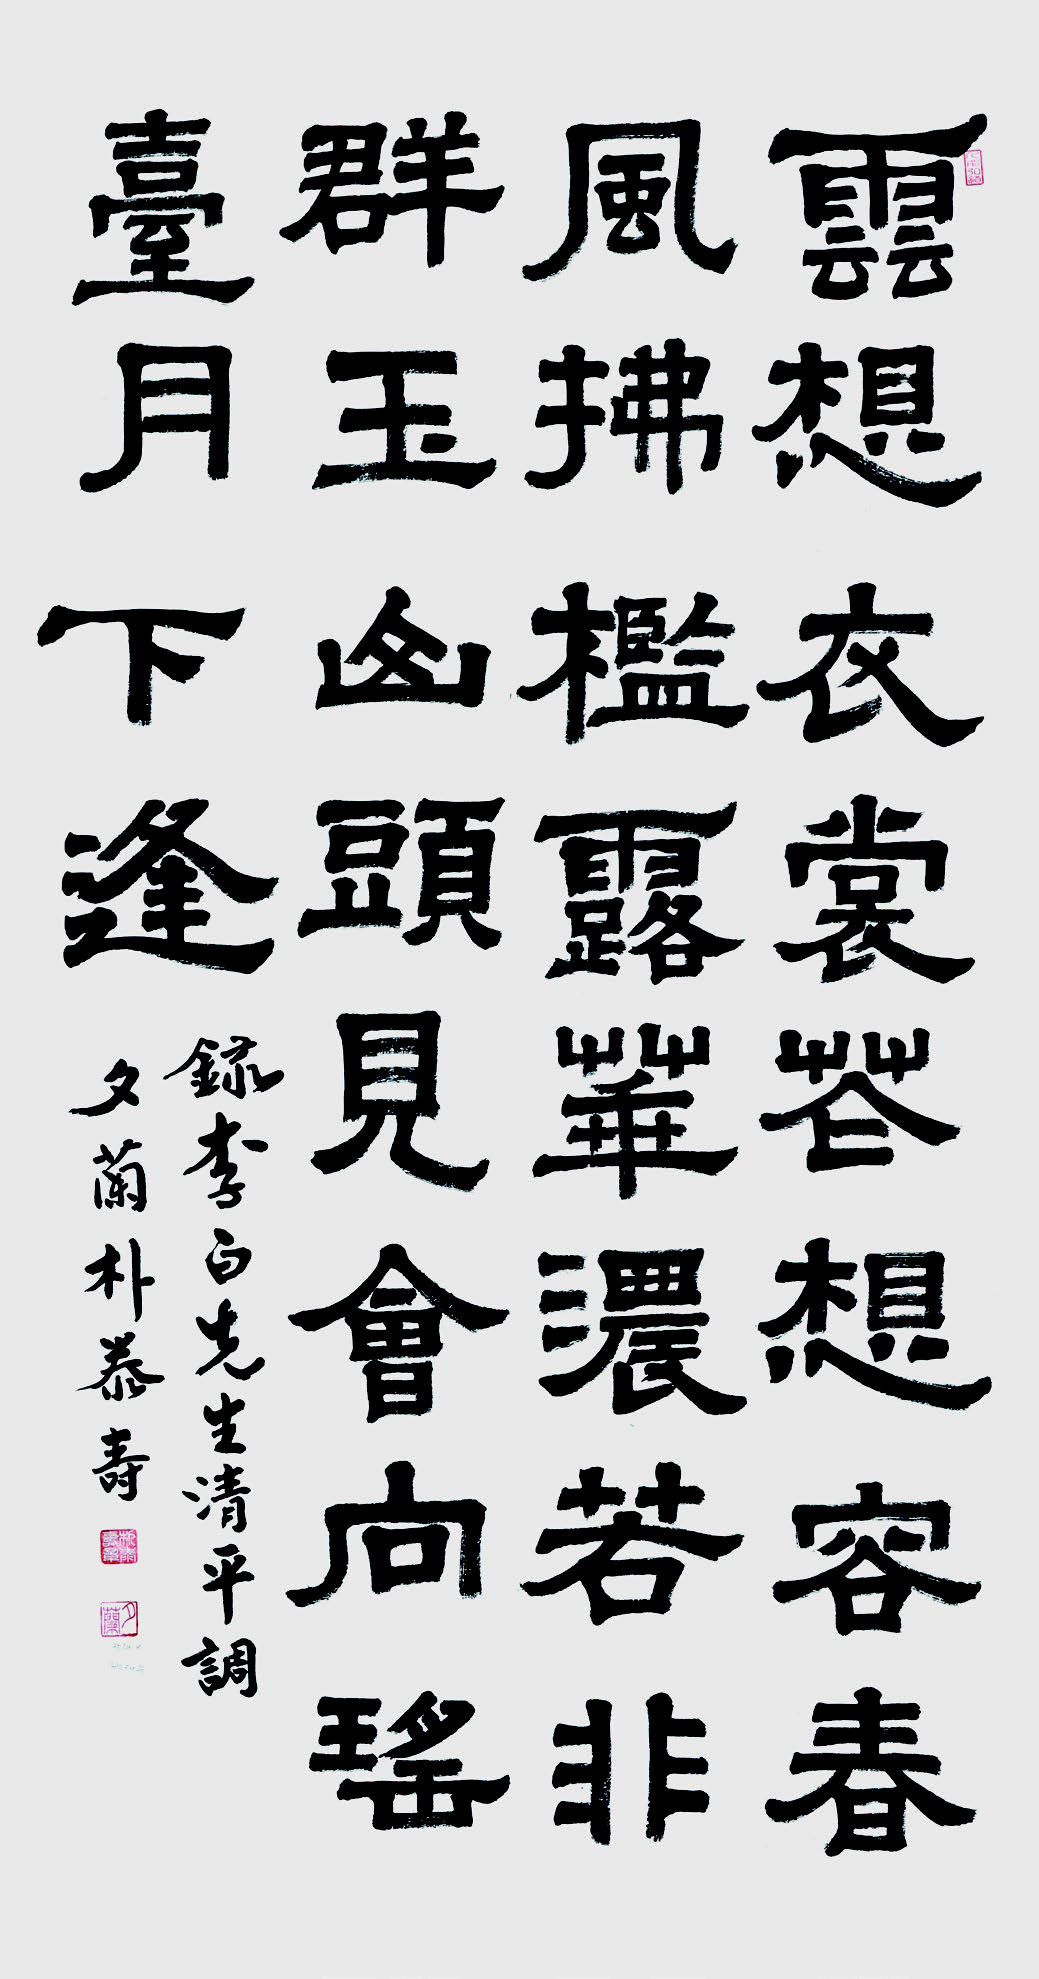 雲想衣裳花想容春
風拂檻露華濃若非
群玉山頭見會向瑤
臺月下逢
錄李白先生清平調
夕蘭朴泰壽
夕蘭